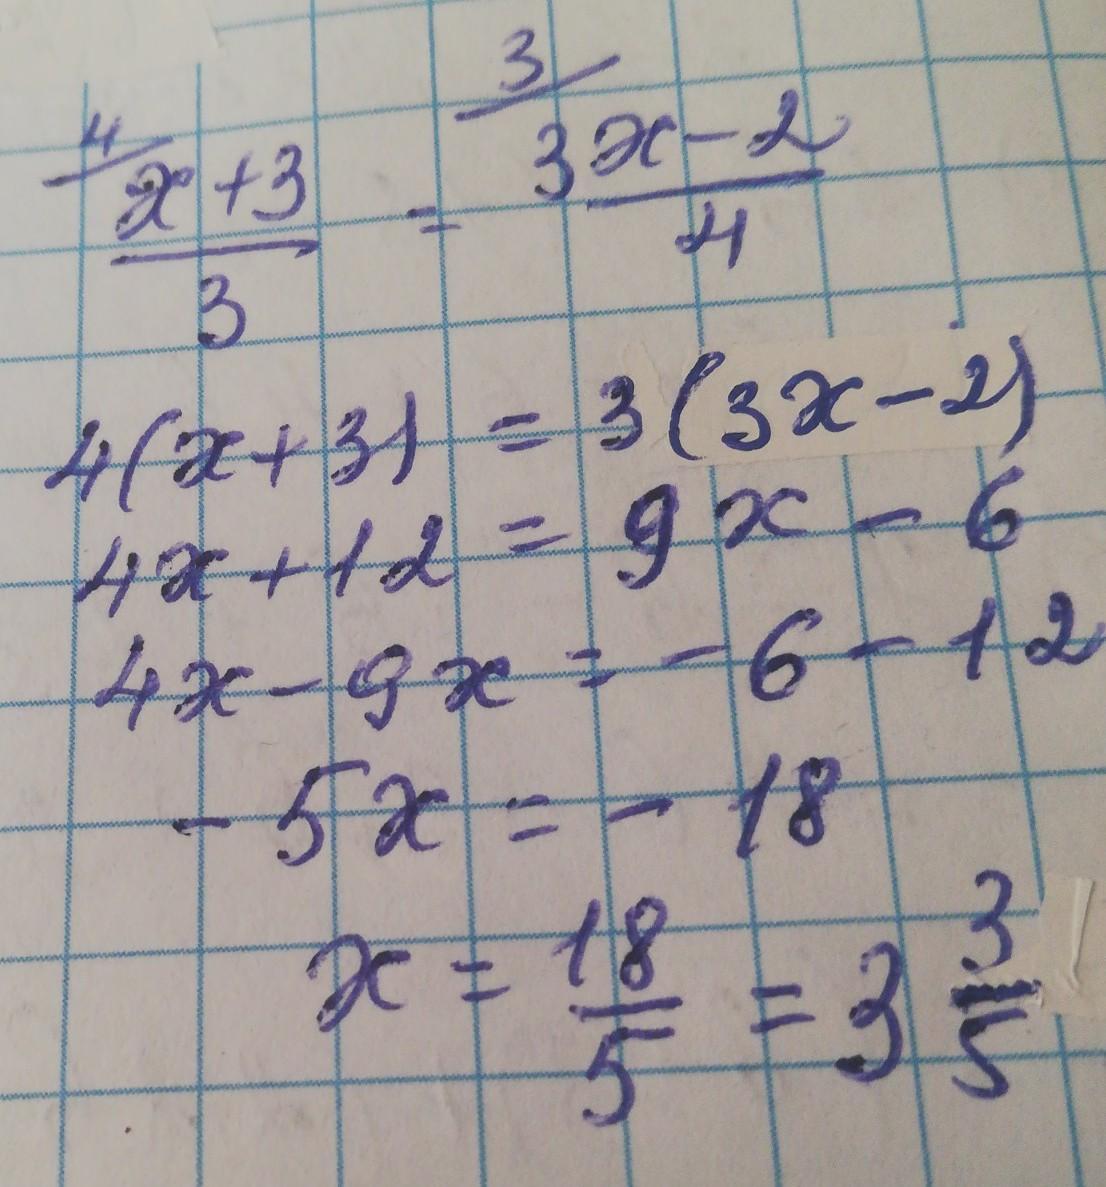 4/ x+3 / 3 = 3/ 3x-2 / 4
4(x+3) = 3(3x-2)
4x+12 = 9x-6
4x-9x = -6-12
-5x = -18
x = 18/5 = 3 3/5